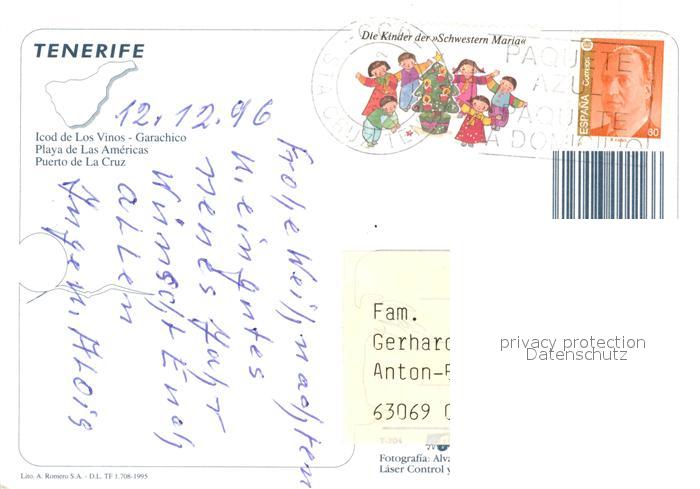 TENERIFE
Icod de Los Vinos - Garachico
Playa de Las Américas
Puerto de La Cruz
12.12.96
Frohe Weihnachten
u. ein gutes
neues Jahr
wünscht Euch
allen
Inge u. Alois
Lito. A. Romero S.A. - D.L. TF 1.708-1995
Die Kinder der »Schwestern Maria«
PAQUETE
AZUL
PAQUETE
A DOMICILIO
ESPAÑA
Correos
60
Fam.
Gerhard
Anton-
63069
privacy protection
Datenschutz
Fotografía: Alva
Láser Control y